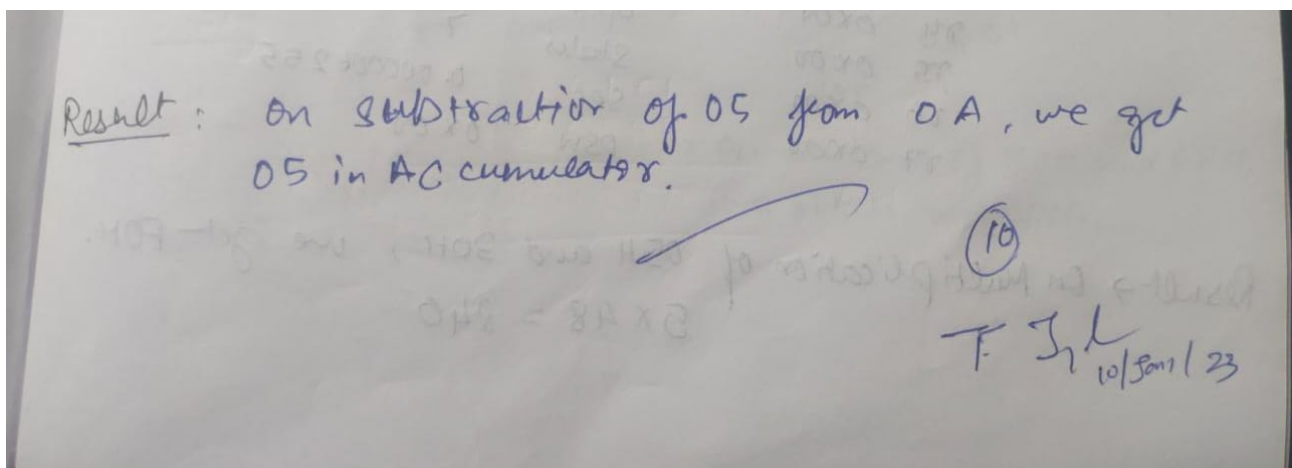 Result : On subtraction of 05 from 0A, we get
05 in ACcumulator.
10
10/Jan/23